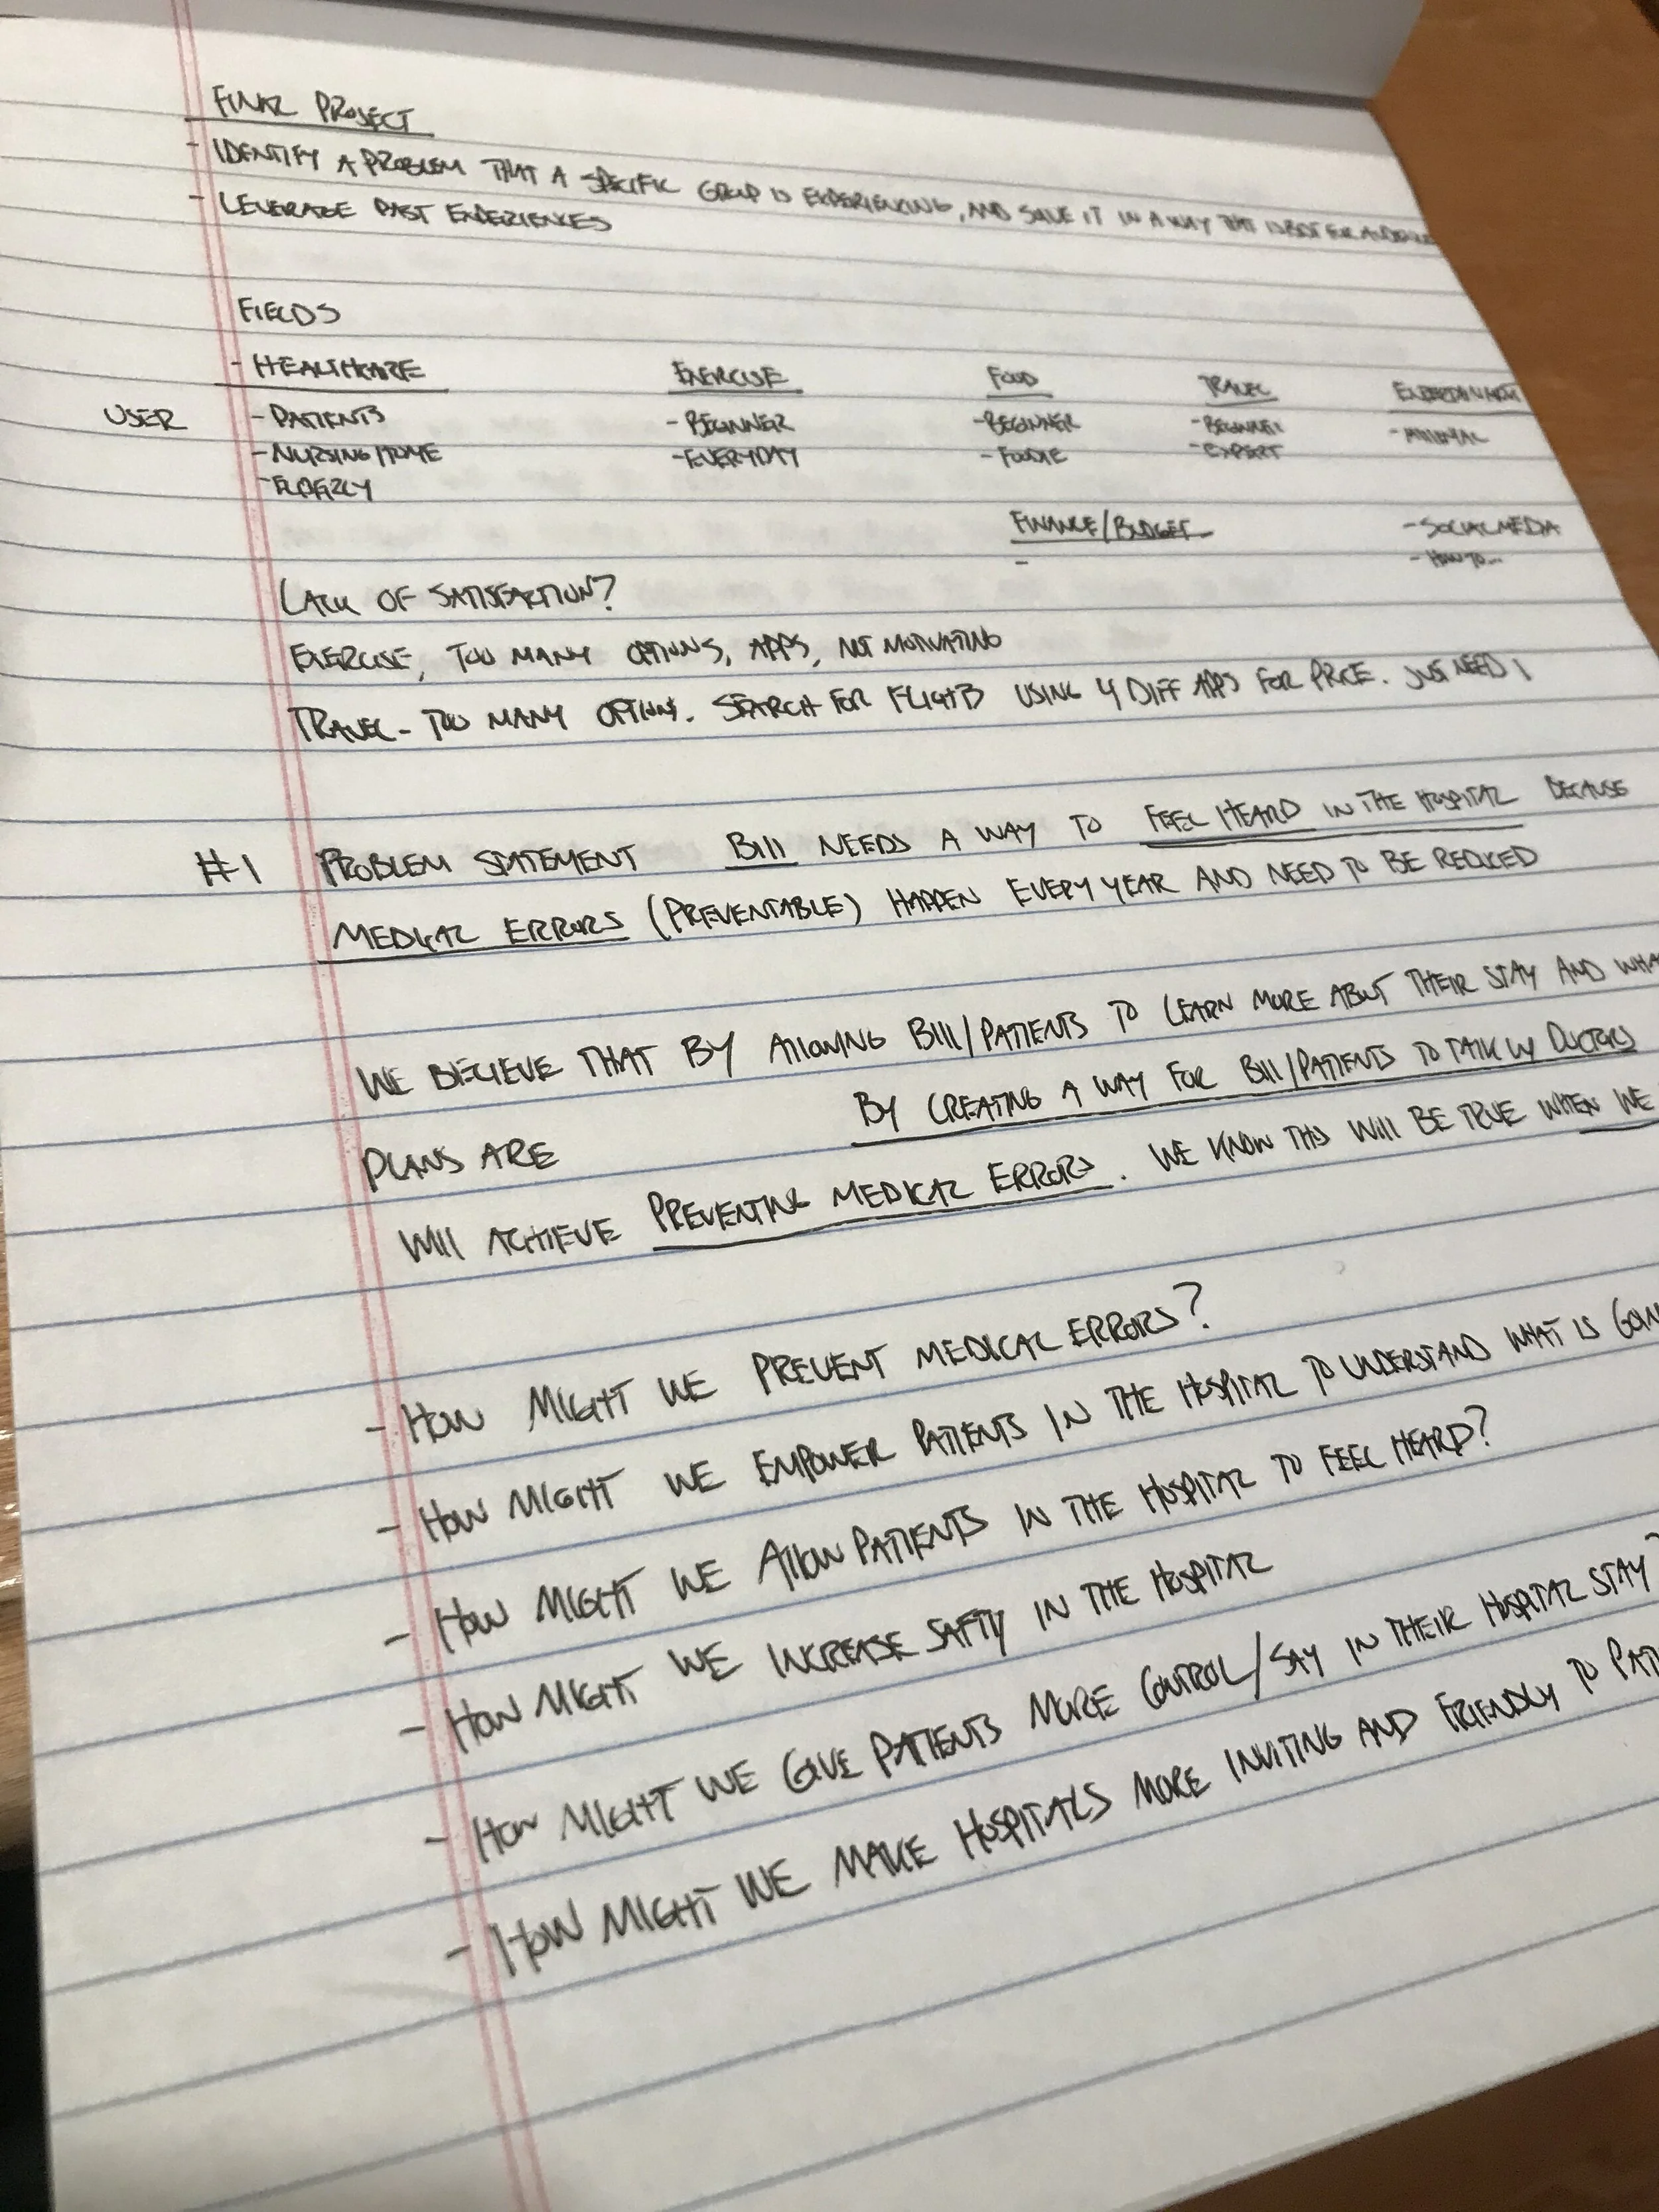 FINAL PROJECT
- IDENTIFY A PROBLEM THAT A SPECIFIC GROUP IS EXPERIENCING, AND SOLVE IT IN A WAY THAT IS BEST FOR AUDIENCE
- LEVERAGE PAST EXPERIENCES
FIELDS
- HEALTHCARE EXERCISE FOOD TRAVEL ENTERTAINMENT
USER - PATIENTS - BEGINNER - BEGINNER - BEGINNER - MINIMAL
- NURSING HOME - EVERYDAY - FOODIE - EXPERT
- ELDERLY
FINANCE/BUDGET - SOCIAL MEDIA
- - HOW TO...
LACK OF SATISFACTION?
EXERCISE, TOO MANY OPTIONS, APPS, NOT MOTIVATING
TRAVEL - TOO MANY OPTIONS. SEARCH FOR FLIGHTS USING 4 DIFF APPS FOR PRICE. JUST NEED 1
#1 PROBLEM STATEMENT BILL NEEDS A WAY TO FEEL HEARD IN THE HOSPITAL BECAUSE
MEDICAL ERRORS (PREVENTABLE) HAPPEN EVERY YEAR AND NEED TO BE REDUCED
WE BELIEVE THAT BY ALLOWING BILL/PATIENTS TO LEARN MORE ABOUT THEIR STAY AND WHA
PLANS ARE BY CREATING A WAY FOR BILL/PATIENTS TO TALK W/ DOCTORS
WILL ACHIEVE PREVENTING MEDICAL ERRORS. WE KNOW THIS WILL BE TRUE WHEN WE
- HOW MIGHT WE PREVENT MEDICAL ERRORS?
- HOW MIGHT WE EMPOWER PATIENTS IN THE HOSPITAL TO UNDERSTAND WHAT IS GOIN
- HOW MIGHT WE ALLOW PATIENTS IN THE HOSPITAL TO FEEL HEARD?
- HOW MIGHT WE INCREASE SAFTY IN THE HOSPITAL
- HOW MIGHT WE GIVE PATIENTS MORE CONTROL/SAY IN THEIR HOSPITAL STAY?
- HOW MIGHT WE MAKE HOSPITALS MORE INVITING AND FRIENDLY TO PATI